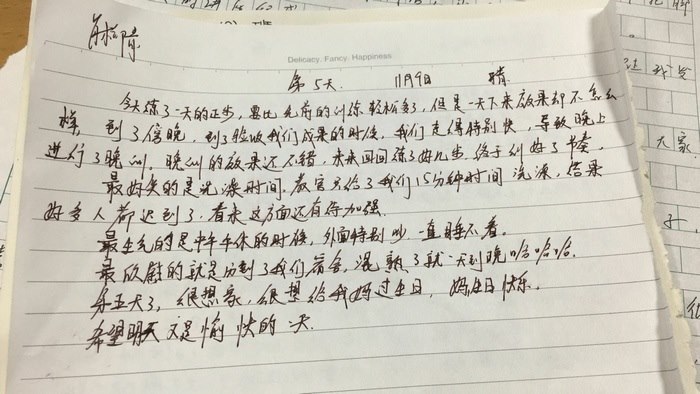 Delicacy. Fancy. Happiness
第5天. 11月9日 晴
今天练了一天的正步，要比先前的训练轻松多了，但是一天下来效果却不怎么
样，到了傍晚，到了验收我们成果的时候，我们走得特别快，导致晚上
进行了晚训，晚训的效果还不错，来来回回练了好几步，终于训好了节奏。
最好笑的是洗澡时间，教官只给了我们15分钟时间洗澡，结果
好多人都迟到了，看来这方面还有待加强.
最生气的是中午午休的时候，外面特别吵一直睡不着。
最欣慰的就是分到了我们宿舍，混熟了就一天到晚哈哈哈.
第五天了，很想家，很想给我妈过生日，妈生日快乐。
希望明天又是愉快的一天.
大家